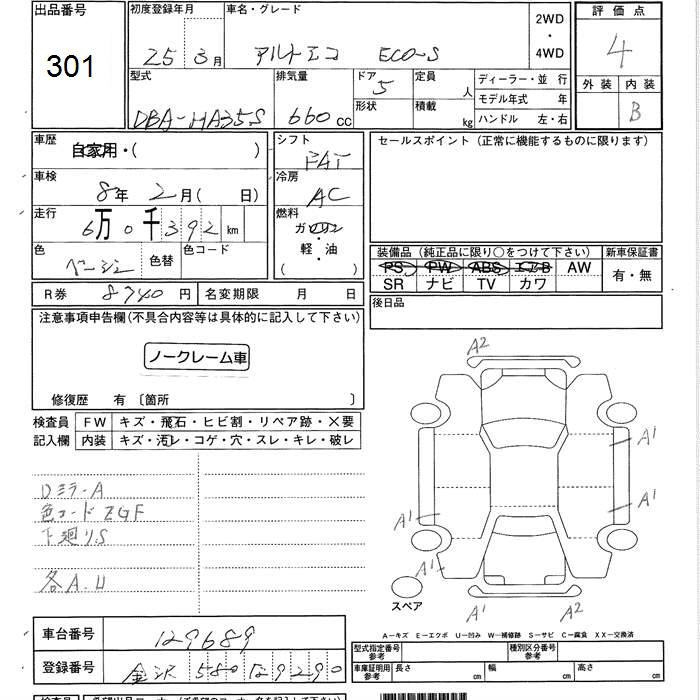 出品番号 初度登録年月 車名・グレード 2WD ・ 4WD 評価点
301 25 3月 アルトエコ ECO-S 4
型式 排気量 ドア 5 定員 人 ディーラー・並 行 外装 内装
モデル年式 年
DBA-HA35S 660 cc 形状 積載 kg ハンドル 左・右 B
車歴 自家用・( ) シフト FAT セールスポイント (正常に機能するものに限ります)
車検 8年 2月( 日) 冷房 AC
走行 6万0千392km 燃料 ガソリン
色 ベージュ 色替 色コード ・ 軽・油 ( )
装備品 (純正品に限り○をつけて下さい) 新車保証書
PS PW ABS エアB AW 有・無
SR ナビ TV カワ
R券 8740円 名変期限 月 日 後日品
注意事項申告欄(不具合内容等は具体的に記入して下さい)
ノークレーム車
修復歴 有 〔箇所 〕
検査員 FW キズ・飛石・ヒビ割・リペア跡・×要
記入欄 内装 キズ・汚レ・コゲ・穴・スレ・キレ・破レ
Dミラ-A
色コード ZGF
下廻りS
各A.U
A2
A1
A1
A1
A1
A1 A2
スペア
A-キズ E-エクボ U-凹み W-補修跡 S-サビ C-腐食 XX-交換済
車台番号 129689
型式指定番号 参考 種別区分番号 参考
登録番号 金沢 580 129290
車庫証明用 参考 長さ cm 幅 cm 高さ cm